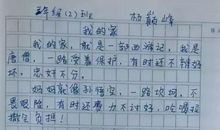 五年级(2)班 杨巅峰
我的家
我的家,就是一部西游记,我是
唐僧,一路受着保护,有时还不辨好
坏,忠奸不分。
妈妈就像孙悟空,一路坎坷,不
畏艰险,有时还费力不讨好,吃嘴撞
撤怎负担!